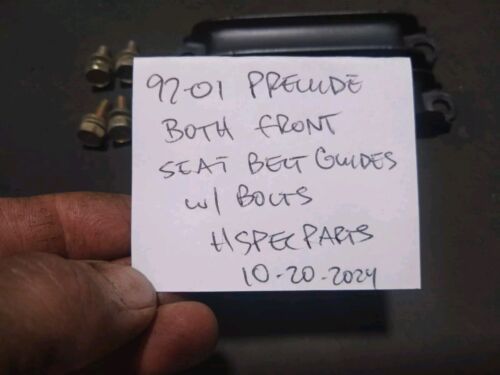 92-01 PRELUDE
BOTH FRONT
SEAT BELT GUIDES
W/ BOLTS
HSPECPARTS
10-20-2024